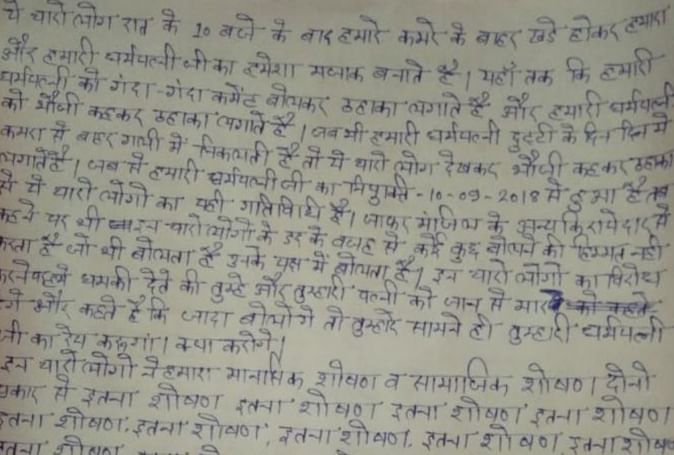 ये चारो लोग रात के 10 बजे के बाद हमारे कमरे के बाहर खड़े होकर हमारा
और हमारी धर्मपत्नी जी का हमेशा मजाक बनाते है। यहाँ तक कि हमारी
धर्मपत्नी को गंदा-गंदा कमेंट बोलकर ठहाका लगाते है और हमारी धर्मपत्नी
को भौजी कहकर ठहाका लगाते है। जब भी हमारी धर्मपत्नी छुट्टी के दिन दिन मे
कमरा से बाहर गाली मे निकलती है तो ये चारो लोग देखकर भौजी कहकर ठहाका
लगाते है। जब से हमारी धर्मपत्नी जी का नियुक्ति-10-09-2018 मे हुआ है तब
से ये चारो लोगो का यही गतिविधि है। जाकर मंजिल के अन्य किरायेदार से
कहने पर भी इन चारो लोगो के डर के वजह से कोई कुछ बोलने की हिम्मत नही
करता है जो भी बोलता है उनके पक्ष मे बोलता है। इन चारो लोगो का विरोध
करने पर धमकी देते की तुम्हे और तुम्हारी पत्नी को जान से मार
और कहते है कि जादा बोलोगे तो तुम्हारे सामने ही तुम्हारी धर्मपत्नी
जी का रेप करूगा। क्या करोगे।
इन चारो लोगो ने हमारा मानसिक शोषण व सामाजिक शोषण दोनो
प्रकार से इतना शोषण इतना शोषण इतना शोषण इतना शोषण
इतना शोषण, इतना शोषण, इतना शोषण, इतना शोषण, इतना शोषण
इतना शोषण